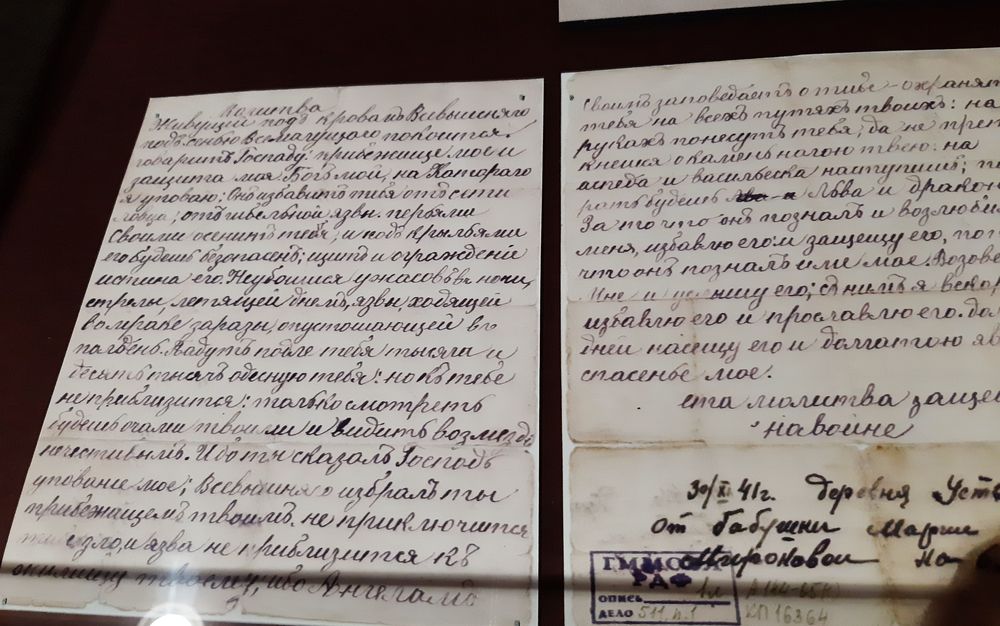 Молитва
Живущий подъ кровамъ Всевышняго
подъ сенью Всемагущаго покоится.
говоритъ Госпаду: прибежище мое и
защита моя Богъ мой, на Катораго
я уповаю: Онъ избавитъ тебя отъ сети
ловца, отъ гибельной язвы. перьями
Своими осенитъ тебя, и подъ крыльями
его будешь безопасенъ; щитъ и ограждение
истина его. Неубоишся ужасовъ в ночи,
стрелы, летящей днемъ, язвы, ходящей
вомраке заразы, опустошающей в
полдень. Падутъ подле тебя тысяча и
десять тысячъ одесную тебя: но къ тебе
не приблизится: только смотреть
будешь очами твоими и видить возмездо
нечестивымъ. Ибо ты сказалъ Господь
упование мое; Всевышняго избралъ ты
прибежащемъ твоимъ, не приключится
тебе зло, и язва не приблизится къ
жилищу твоему, ибо Ангеламъ
Своимъ заповедаетъ о тебе - охранят
тебя на всехъ путяхъ твоихъ: на
рукахъ понесутъ тебя, да не прет
кнешся о камень нагою твею: на
аспеда и василеска наступишь; по
рать будешь Льва и дракон
За то что онъ позналъ и возлюби
меня, избавлю его и защещу его, пот
что онъ позналъ имя мое. Возове
Мне и услышу его; съ нимъ я вскор
избавлю его и прославлю его. дол
дней насещу его и долгатою яв
спасенье мое.
ета молитва защещ
на воине
30/XI 41г. деревня Уст
От бабушки Марии
Мироновой на
ГММОБ
РАФ
опись 1л
дело 511, л.1
КП 16364